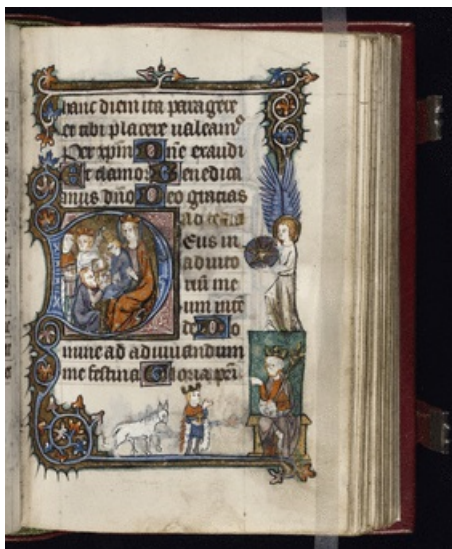 hanc diem ita paragere
et tibi placere ualeam
Per xpm Dne exaudi
Et clamor Benedica
mus dno Deo gracias
Ad terciā
Deus in
adiuto
riū me
um intē
de Do
mine ad adiuuandum
me festina Gloria pri